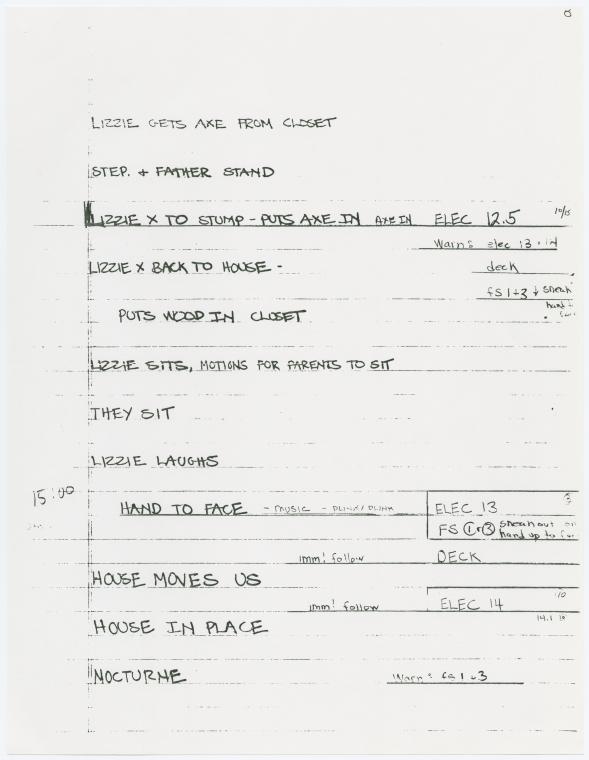 8
LIZZIE GETS AXE FROM CLOSET
STEP. + FATHER STAND
LIZZIE X TO STUMP - PUTS AXE IN AXE IN ELEC 12.5 10/15
Warn: elec 13 + 14
LIZZIE X BACK TO HOUSE - deck
fs 1+3 ↓ sneak
hand
PUTS WOOD IN CLOSET
LIZZIE SITS, MOTIONS FOR PARENTS TO SIT
THEY SIT
LIZZIE LAUGHS
15:00
HAND TO FACE - MUSIC - PLINK/PLINK ELEC 13 3
FS 1+3 sneak out
hand up to
imm! follow DECK
HOUSE MOVES US
imm! follow ELEC 14 10
HOUSE IN PLACE 14.1
NOCTURNE Warn: fs 1+3